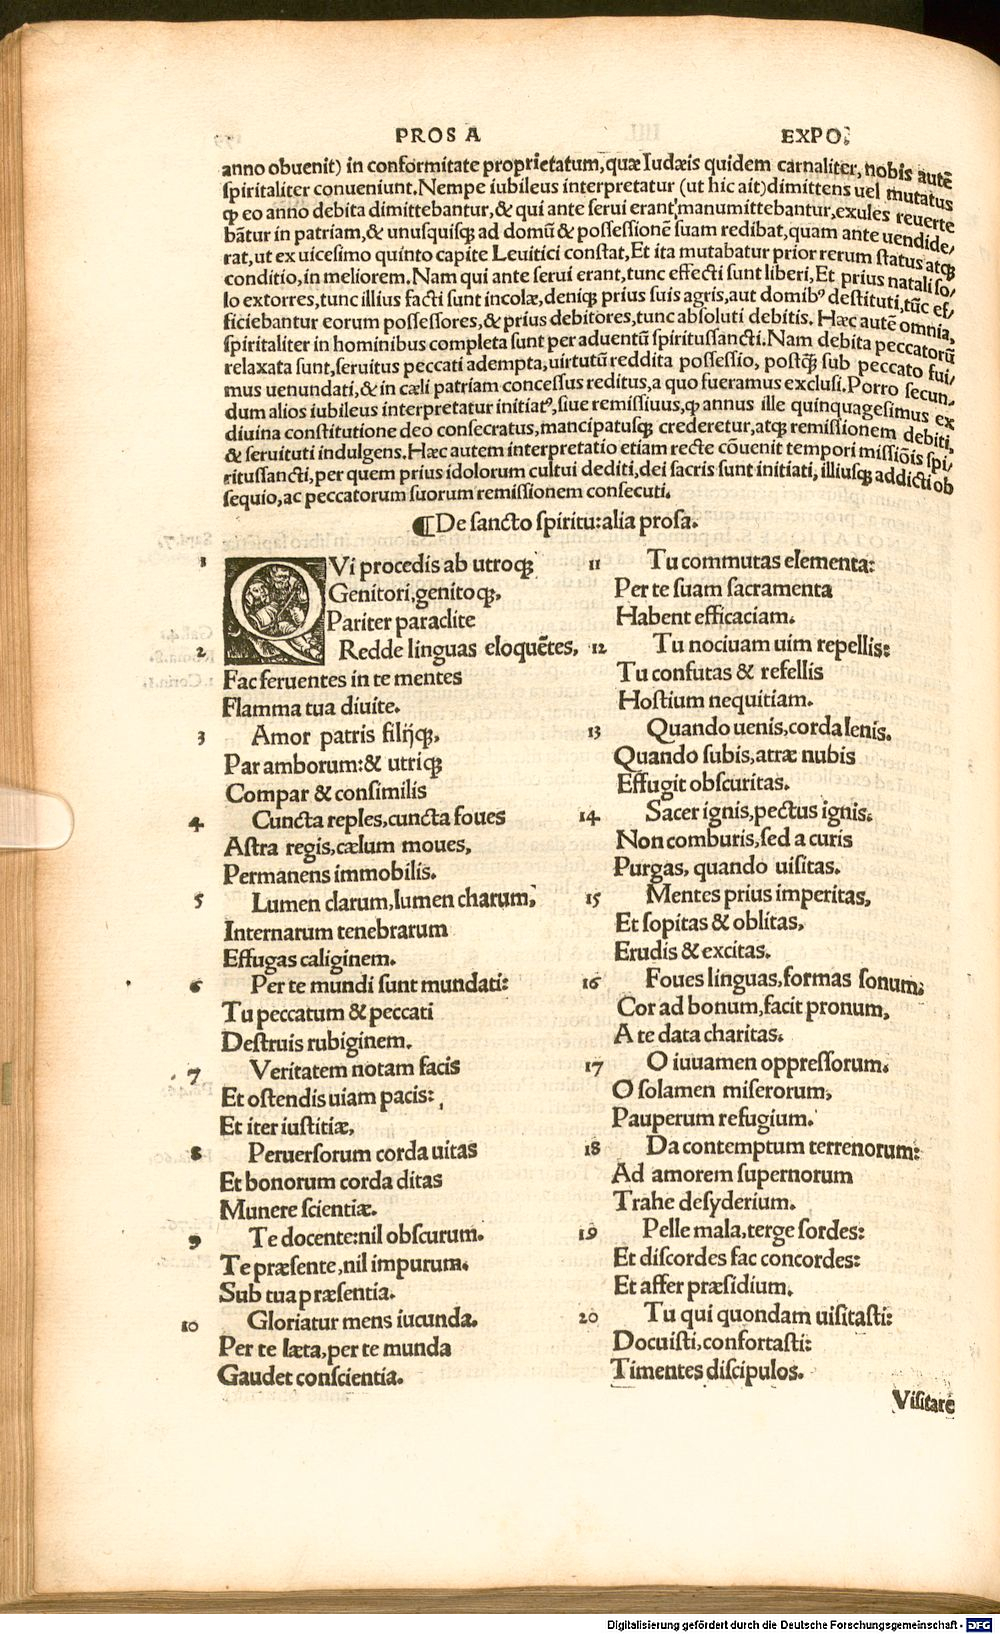 PROSA EXPO.
anno obuenit) in conformitate proprietatum,quæ Iudæis quidem carnaliter,nobis autē
spiritaliter conueniunt.Nempe iubileus interpretatur (ut hic ait)dimittens uel mutatus
ꝙ eo anno debita dimittebantur,& qui ante serui erant,manumittebantur,exules reuerte
bātur in patriam,& unusquisqꝫ ad domū & possessionē suam redibat,quam ante uendide/
rat,ut ex uicesimo quinto capite Leuitici constat,Et ita mutabatur prior rerum status atqꝫ
conditio,in meliorem.Nam qui ante serui erant,tunc effecti sunt liberi,Et prius natali so/
lo extorres,tunc illius facti sunt incolæ,deniqꝫ prius suis agris,aut domibꝰ destituti,tūc ef/
ficiebantur eorum possessores,& prius debitores,tunc absoluti debitis. Hæc autē omnia,
spiritaliter in hominibus completa sunt per aduentū spiritussancti.Nam debita peccatorū
relaxata sunt,seruitus peccati adempta,uirtutū reddita possessio, postꝙ̄ sub peccato fui/
mus uenundati,& in cæli patriam concessus reditus,a quo fueramus exclusi.Porro secun/
dum alios iubileus interpretatur initiatꝰ,siue remissiuus,ꝙ annus ille quinquagesimus ex
diuina constitutione deo consecratus,mancipatusqꝫ crederetur,atqꝫ remissionem debiti,
& seruituti indulgens.Hæc autem interpretatio etiam recte cōuenit tempori missiōis spi/
ritussancti,per quem prius idolorum cultui dediti,dei sacris sunt initiati,illiusqꝫ addicti ob
sequio,ac peccatorum suorum remissionem consecuti.
¶De sancto spiritu:alia prosa.
1 QVi procedis ab utroqꝫ
Genitori,genitoqꝫ,
Pariter paraclite
2 Redde linguas eloquētes,
Fac feruentes in te mentes
Flamma tua diuite.
3 Amor patris filijqꝫ,
Par amborum:& utriqꝫ
Compar & consimilis
4 Cuncta reples,cuncta foues
Astra regis,cælum moues,
Permanens immobilis.
5 Lumen clarum,lumen charum,
Internarum tenebrarum
Effugas caliginem.
6 Per te mundi sunt mundati:
Tu peccatum & peccati
Destruis rubiginem.
7 Veritatem notam facis
Et ostendis uiam pacis:
Et iter iustitiæ,
8 Peruersorum corda uitas
Et bonorum corda ditas
Munere scientiæ.
9 Te docente:nil obscurum.
Te præsente,nil impurum.
Sub tua præsentia.
10 Gloriatur mens iucunda.
Per te læta,per te munda
Gaudet conscientia.
11 Tu commutas elementa:
Per te suam sacramenta
Habent efficaciam.
12 Tu nociuam uim repellis:
Tu confutas & refellis
Hostium nequitiam.
13 Quando uenis,corda lenis.
Quando subis,atræ nubis
Effugit obscuritas.
14 Sacer ignis,pectus ignis.
Non comburis,sed a curis
Purgas, quando uisitas.
15 Mentes prius imperitas,
Et sopitas & oblitas,
Erudis & excitas.
16 Foues linguas,formas sonum,
Cor ad bonum,facit pronum,
A te data charitas.
17 O iuuamen oppressorum.
O solamen miserorum,
Pauperum refugium.
18 Da contemptum terrenorum:
Ad amorem supernorum
Trahe desyderium.
19 Pelle mala,terge sordes:
Et discordes fac concordes:
Et affer præsidium.
20 Tu qui quondam uisitasti:
Docuisti,confortasti:
Timentes discipulos.
Visitare
Digitalisierung gefördert durch die Deutsche Forschungsgemeinschaft - DFG